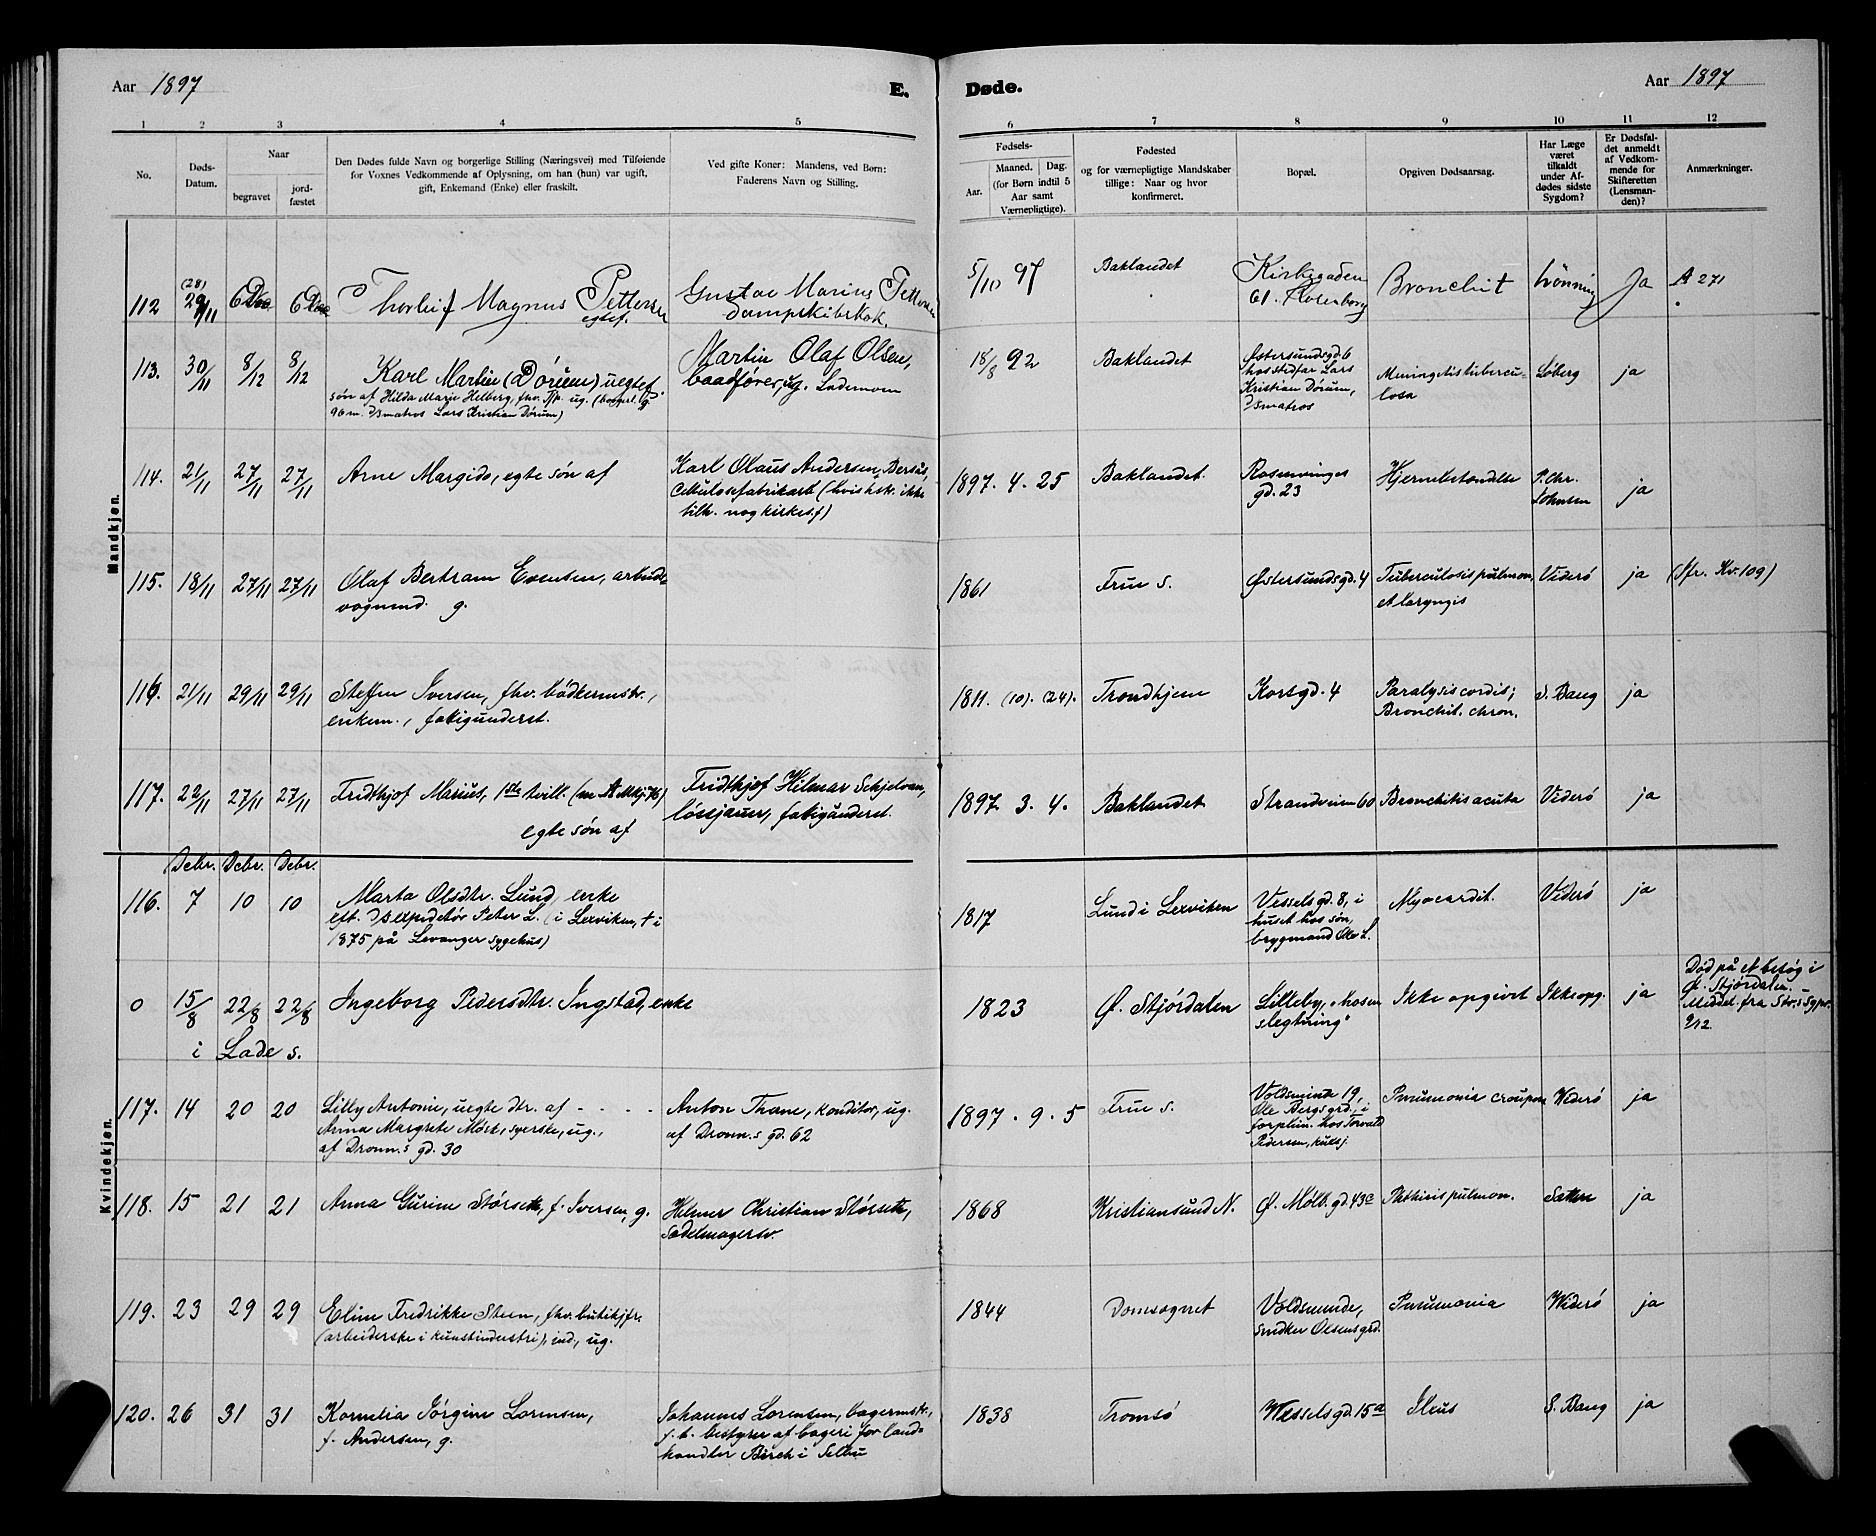 Aar 1897
E. Døde.
Aar 1897
1 2 3 4 5 6 7 8 9 10 11 12
No.
Døds-
Datum.
Naar
begravet
jord-
fæstet
Den Dødes fulde Navn og borgerlige Stilling (Næringsvei) med Tilføiende
for Voxnes Vedkommende af Oplysning, om han (hun) var ugift,
gift, Enkemand (Enke) eller fraskilt.
Ved gifte Koner: Mandens, ved Børn:
Faderens Navn og Stilling.
Fødsels-
Aar.
Maaned. Dag.
(for Børn indtil 5
Aar samt
Værnepligtige).
Fødested
og for værnepligtige Mandskaber
tillige: Naar og hvor
konfirmeret.
Bopæl.
Opgiven Dødsaarsag.
Har Læge
været
tilkaldt
under Af-
dødes sidste
Sygdom?
Er Dødsfal-
det anmeldt
af Vedkom-
mende for
Skifteretten
(Lensman-
den)?
Anmærkninger.
Mandkjøn.
112 (28) 29/11 6 Dec 6 Dec
Thorleif Magnus Pettersen
egtef.
Gustav Marius Pettersen
Dampskibskok.
5/10 97
Baklandet
Kirkegaden
61. Rosenborg
Bronchit
Lønning
Ja
A 271
113. 30/11 8/12 8/12
Karl Martin (Dørum) uegtef.
søn af Hilda Marie Helberg, fhv. tjp. ug. (borgerl. g.
96 m. D/Smatros Lars Kristian Dørum)
Martin Olaf Olsen,
baadfører, ug. Lademoen
18/8 92
Baklandet
Østersundsgd. 6
hos stidfar Lars
Kristian Dørum,
D/smatros
Meningitis tubercu-
losa
Søberg
ja
114. 21/11 27/11 27/11
Arne Margido, egte søn af
Karl Olaus Andersen Bersås,
Cellulosefabrikarb (hvis hstr. ikke
tilh. nog kirkesf)
1897. 4. 25
Baklandet.
Rosenvinges
gd. 23
Hjernebetændelse
P. Chr.
Johnsen
ja
115. 18/11 27/11 27/11
Olaf Bertram Evensen, arbeids-
vognmd. g.
1861
Frue s.
Østersundsgd. 4
Tuberculosis pulmon.
et laryngis
Viderö
ja
(Jfr. Kv. 109)
116. 21/11 29/11 29/11
Steffen Iversen, fhv. bødkermstr.,
enkem., fatigunderst.
1811. (10). (24).
Trondhjem
Korsgd. 4
Paralysis cordis;
Bronchit. chron.
S. Bang
ja
117. 22/11 27/11 27/11
Fridthjof Marius, 1ste tvill. (m A Mkj. 76)
egte søn af
Fridthjof Hilmar Schjelvan,
løssjauer, fatigunderst.
1897 3. 4.
Baklandet
Strandveien 60
Bronchitis acuta
Viderö
ja
Kvindekjøn.
Decbr. Decbr. Decbr.
116. 7 10 10
Marta Olsdtr. Lund, enke
eft. D/S expeditør Peter L. (i Lexviken, † i
1875 på Levanger sygehus)
1817
Lund i Lexviken
Vessels gd. 8, i
huset hos søn,
brygmand Ole L.
Myocardit.
Viderö
ja
0 15/8 22/8 22/8
i Lade s.
Ingeborg Pedersdtr. Ingstad, enke
1823
Ø. Stjørdalen
Lilleby, "Mosen
slegtning"
Ikke opgivet
Ikke opg.
ja
Død på et besøg i
Ø. Stjørdalen.
Meddel. fra Stør.s Sgpr.
9/12
117. 14 20 20
Lilly Antonie, uegte dtr. af - - - -
Anna Margrete Mørk, syerske, ug.,
af Dronn.s gd. 30
Anton Thane, konditor, ug.
af Dronn.s gd. 62
1897 . 9 . 5
Frue s.
Voldsminde 19,
Ole Bergs grd., i
forplein. hos Torvald
Pedersen, kuksj.
Pneumonia croupos
Widerö
ja
118. 15 21 21
Anna Gurine Størseth, f. Iversen, g.
Helmer Christian Størseth,
Sadelmagersv.
1868
Kristiansund N.
Ø. Møllb. gd. 43c
Phthisis pulmon.
Sæther
ja
119. 23 29 29
Eline Fredrikke Steen, fhv. butikjfr.
(arbeiderske i kunstindustri), ind., ug.
1844
Domsognet
Voldsminde,
Snedker Olsens grd.
Pneumonia
Widerö
ja
120. 26 31 31
Kornelia Jørgine Lorensen,
f. Andersen, g.
Johannes Lorensen, bagermstr.,
f. t. bestyrer af bageri for land-
handler Birch i Selbu
1838
Tromsö
Wesselsgd. 15a
Ileus
S. Bang
ja